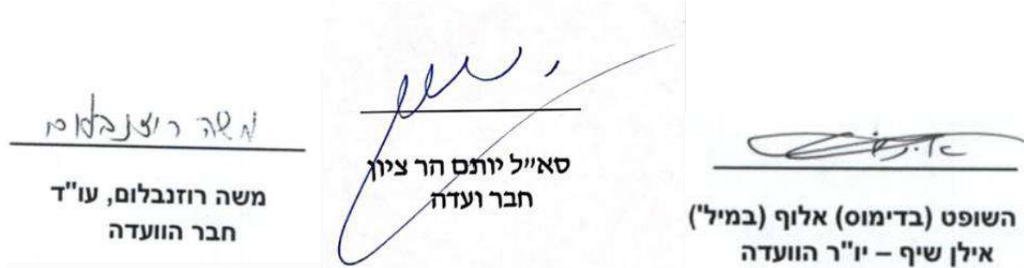 השופט (בדימוס) אלוף (במיל')
אילן שיף – יו"ר הוועדה
סא"ל יותם הר ציון
חבר ועדה
משה רוזנבלום
משה רוזנבלום, עו"ד
חבר הוועדה